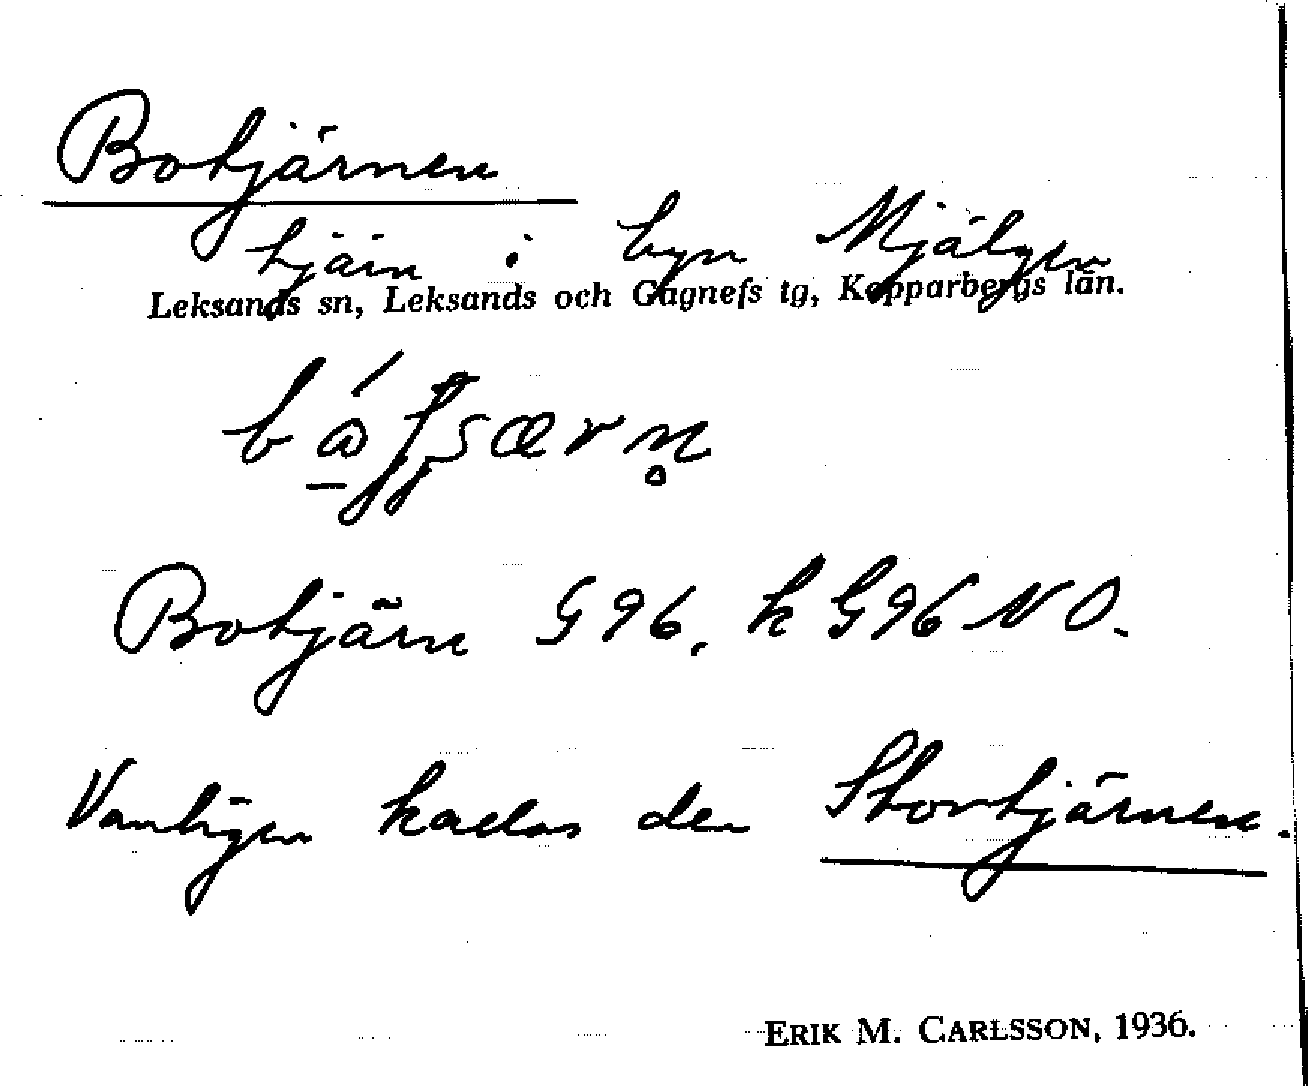 Botjärnen
tjärn i byn Mjälgen
Leksands sn, Leksands och Gagnefs tg, Kopparbergs län.
Botjärn G 96, k G 96 NO.
Vanligen kallas den Stortjärnen.
ERIK M. CARLSSON, 1936.